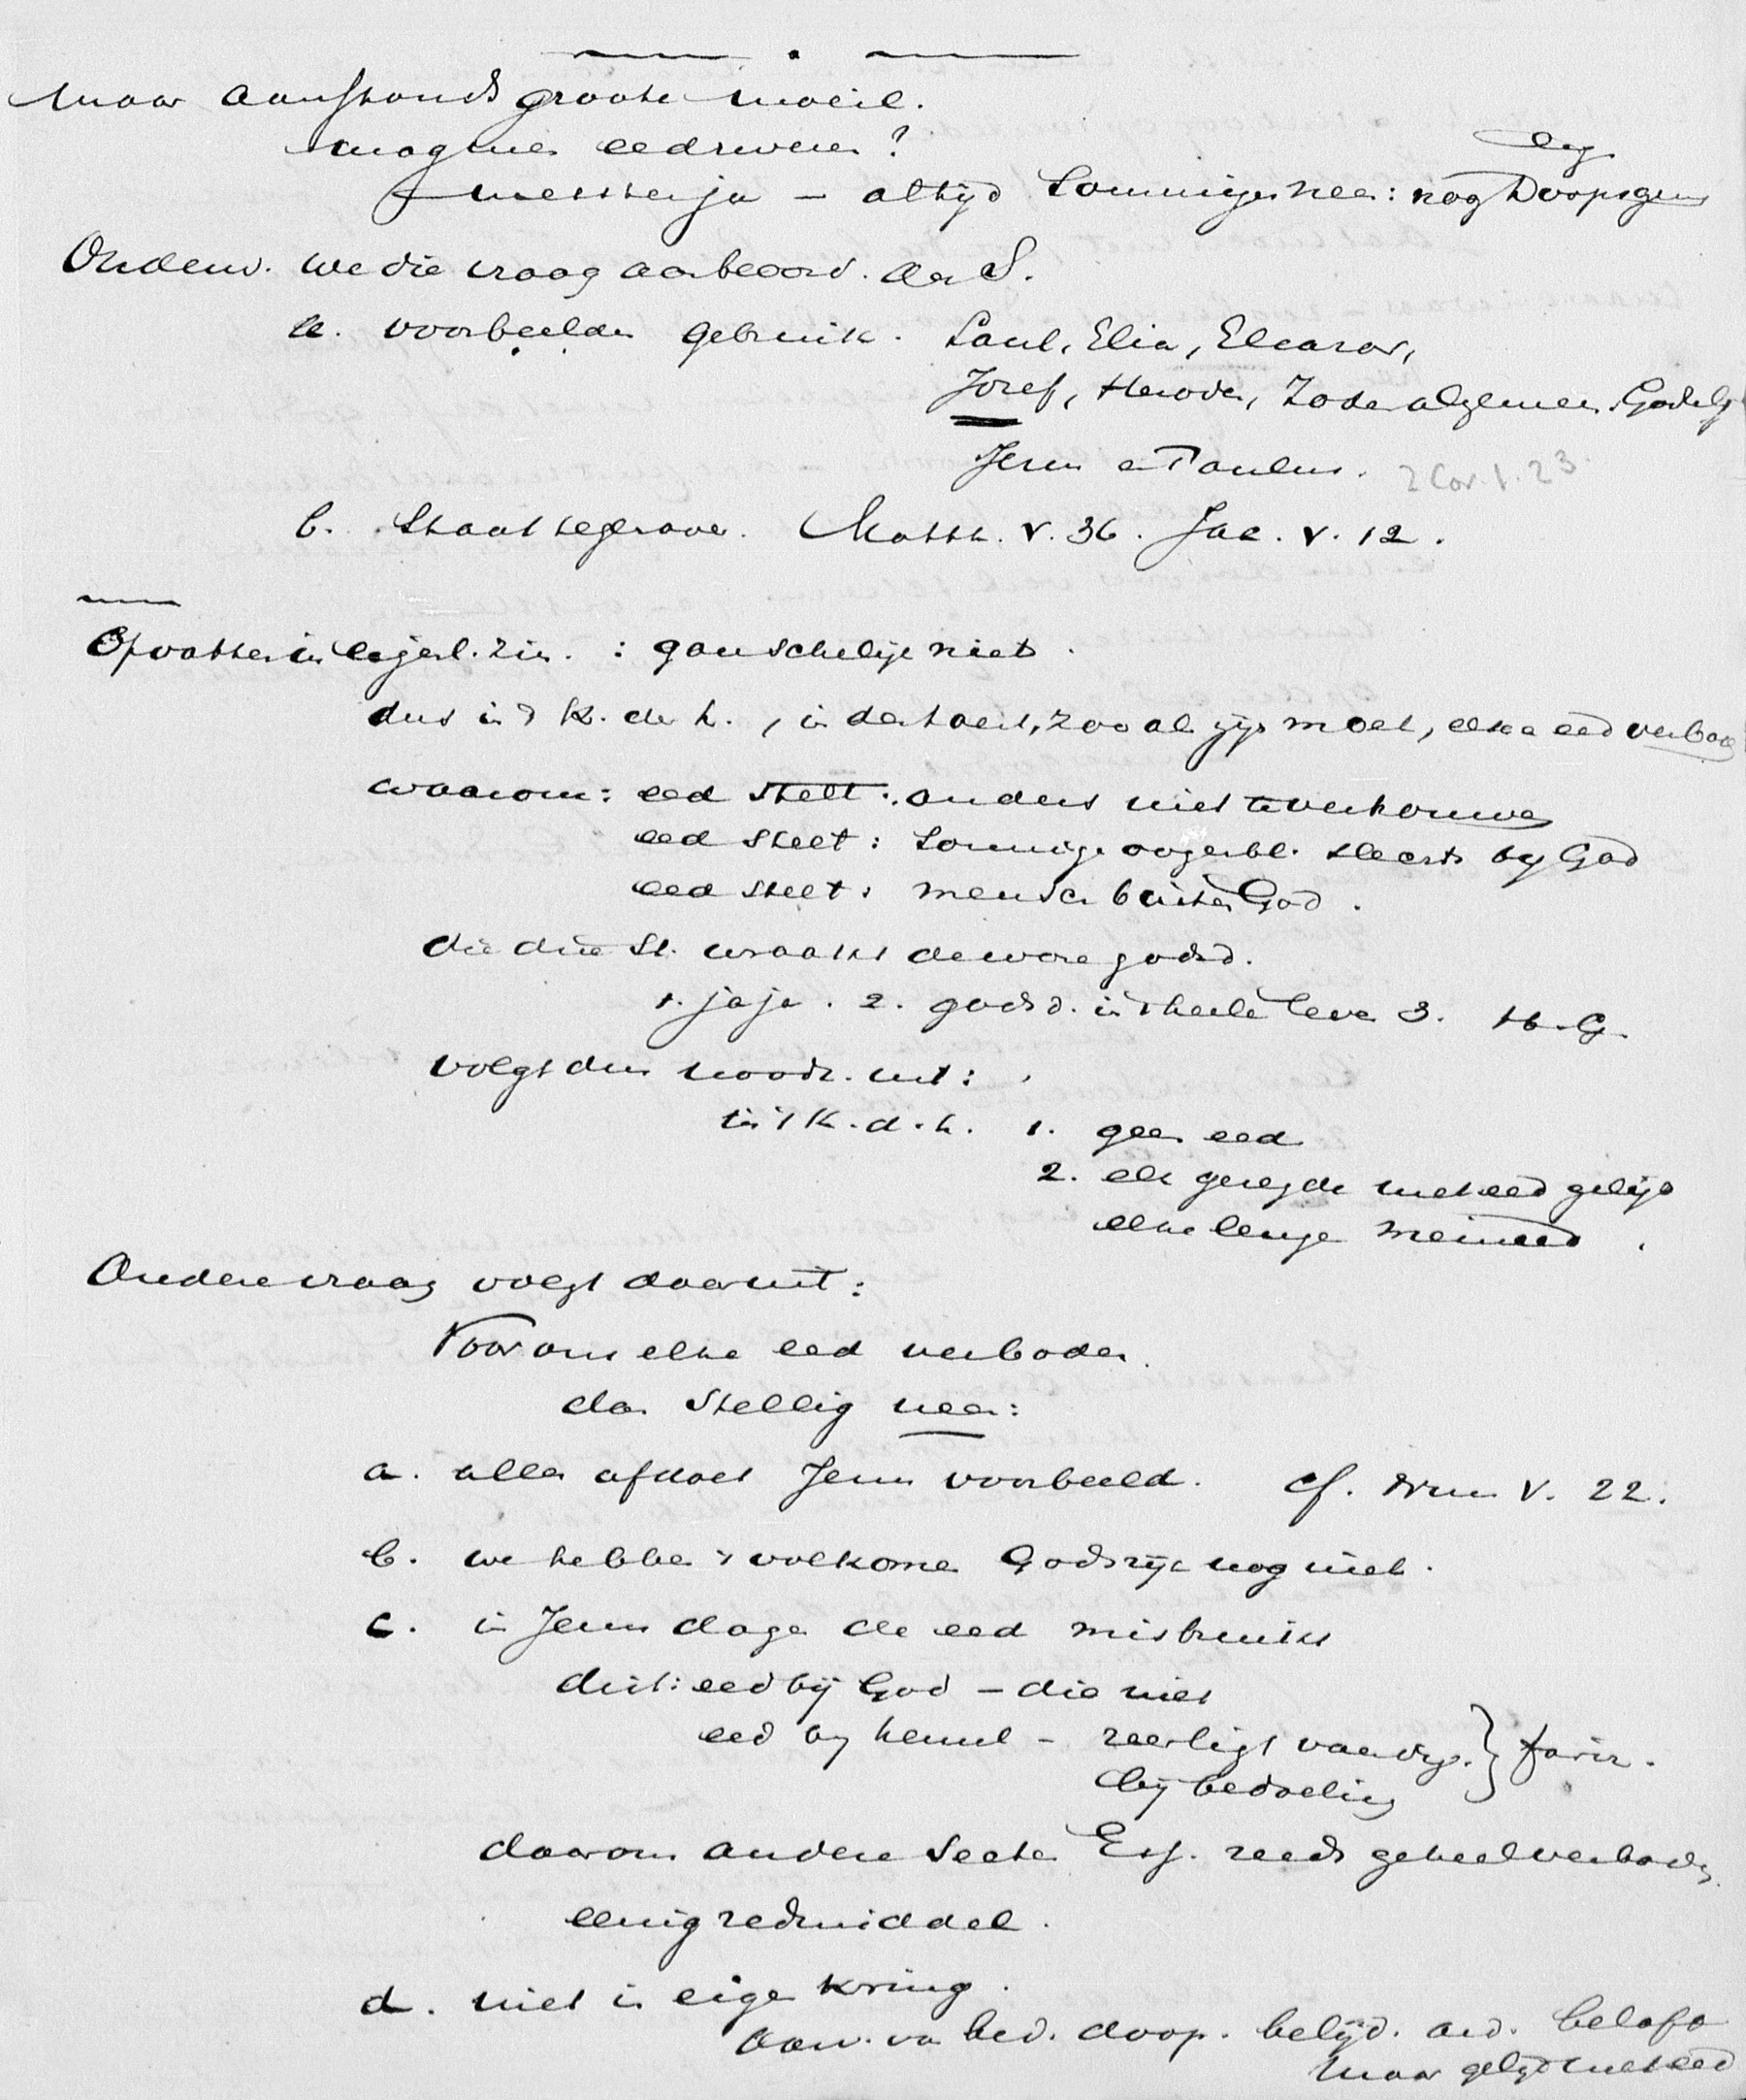 Maar aanstonds groote moeil.
mag men eed zweren?
meesten ja – altijd sommigen neen: nog Doopsgez
Onderw. we die vraag aan beoord. der S.
a. voorbeelden gebruik. Saul, Elia, Eleazar,
Jozef, Herodes, Joden algemeen. God zelf
Jezus en Paulus. 2 Cor. 1. 23
b. Staat tegenover. Matth. V. 36. Jac. V. 12.
Opvatten in eigenl. zin. : ganschelijk niet.
dus in 't K. der h., in den toest, zooals zijn moet, elke eed verbod
waarom: eed stelt: anders niet te vertrouwen
eed stelt: sommige oogenbl. slechts bij God
eed stelt: mensch buiten God.
die drie st. wraakt de ware godsd.
1. ja ja. 2. godsd. in 't heele leven 3. H. G.
volgt dus noodz. uit:
in 't K. d. h. 1. geen eed
2. elk gezegde met eed gelijk
elke leugen meineed.
Andere vraag volgt daaruit:
Voor ons elke eed verboden.
dan stellig neen:
a. alles afdoet Jezus voorbeeld. cf. V. 22.
b. we hebben 't volkomen Godsrijk nog niet.
c. in Jezus dagen de eed misbruikt
dist: eed bij God – die niet
eed bij hemel – neerligt
bij bedoeling } fariz.
daarom andere secten Ess. reeds geheel verboden
eenig redmiddel.
d. niet in eigen kring.
aan. van bed. doop. belijd. belofte
maar gelijk met eed